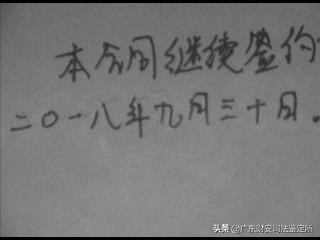 本合同继续签约
二〇一八年九月三十日。
头条 @广东财安司法鉴定所